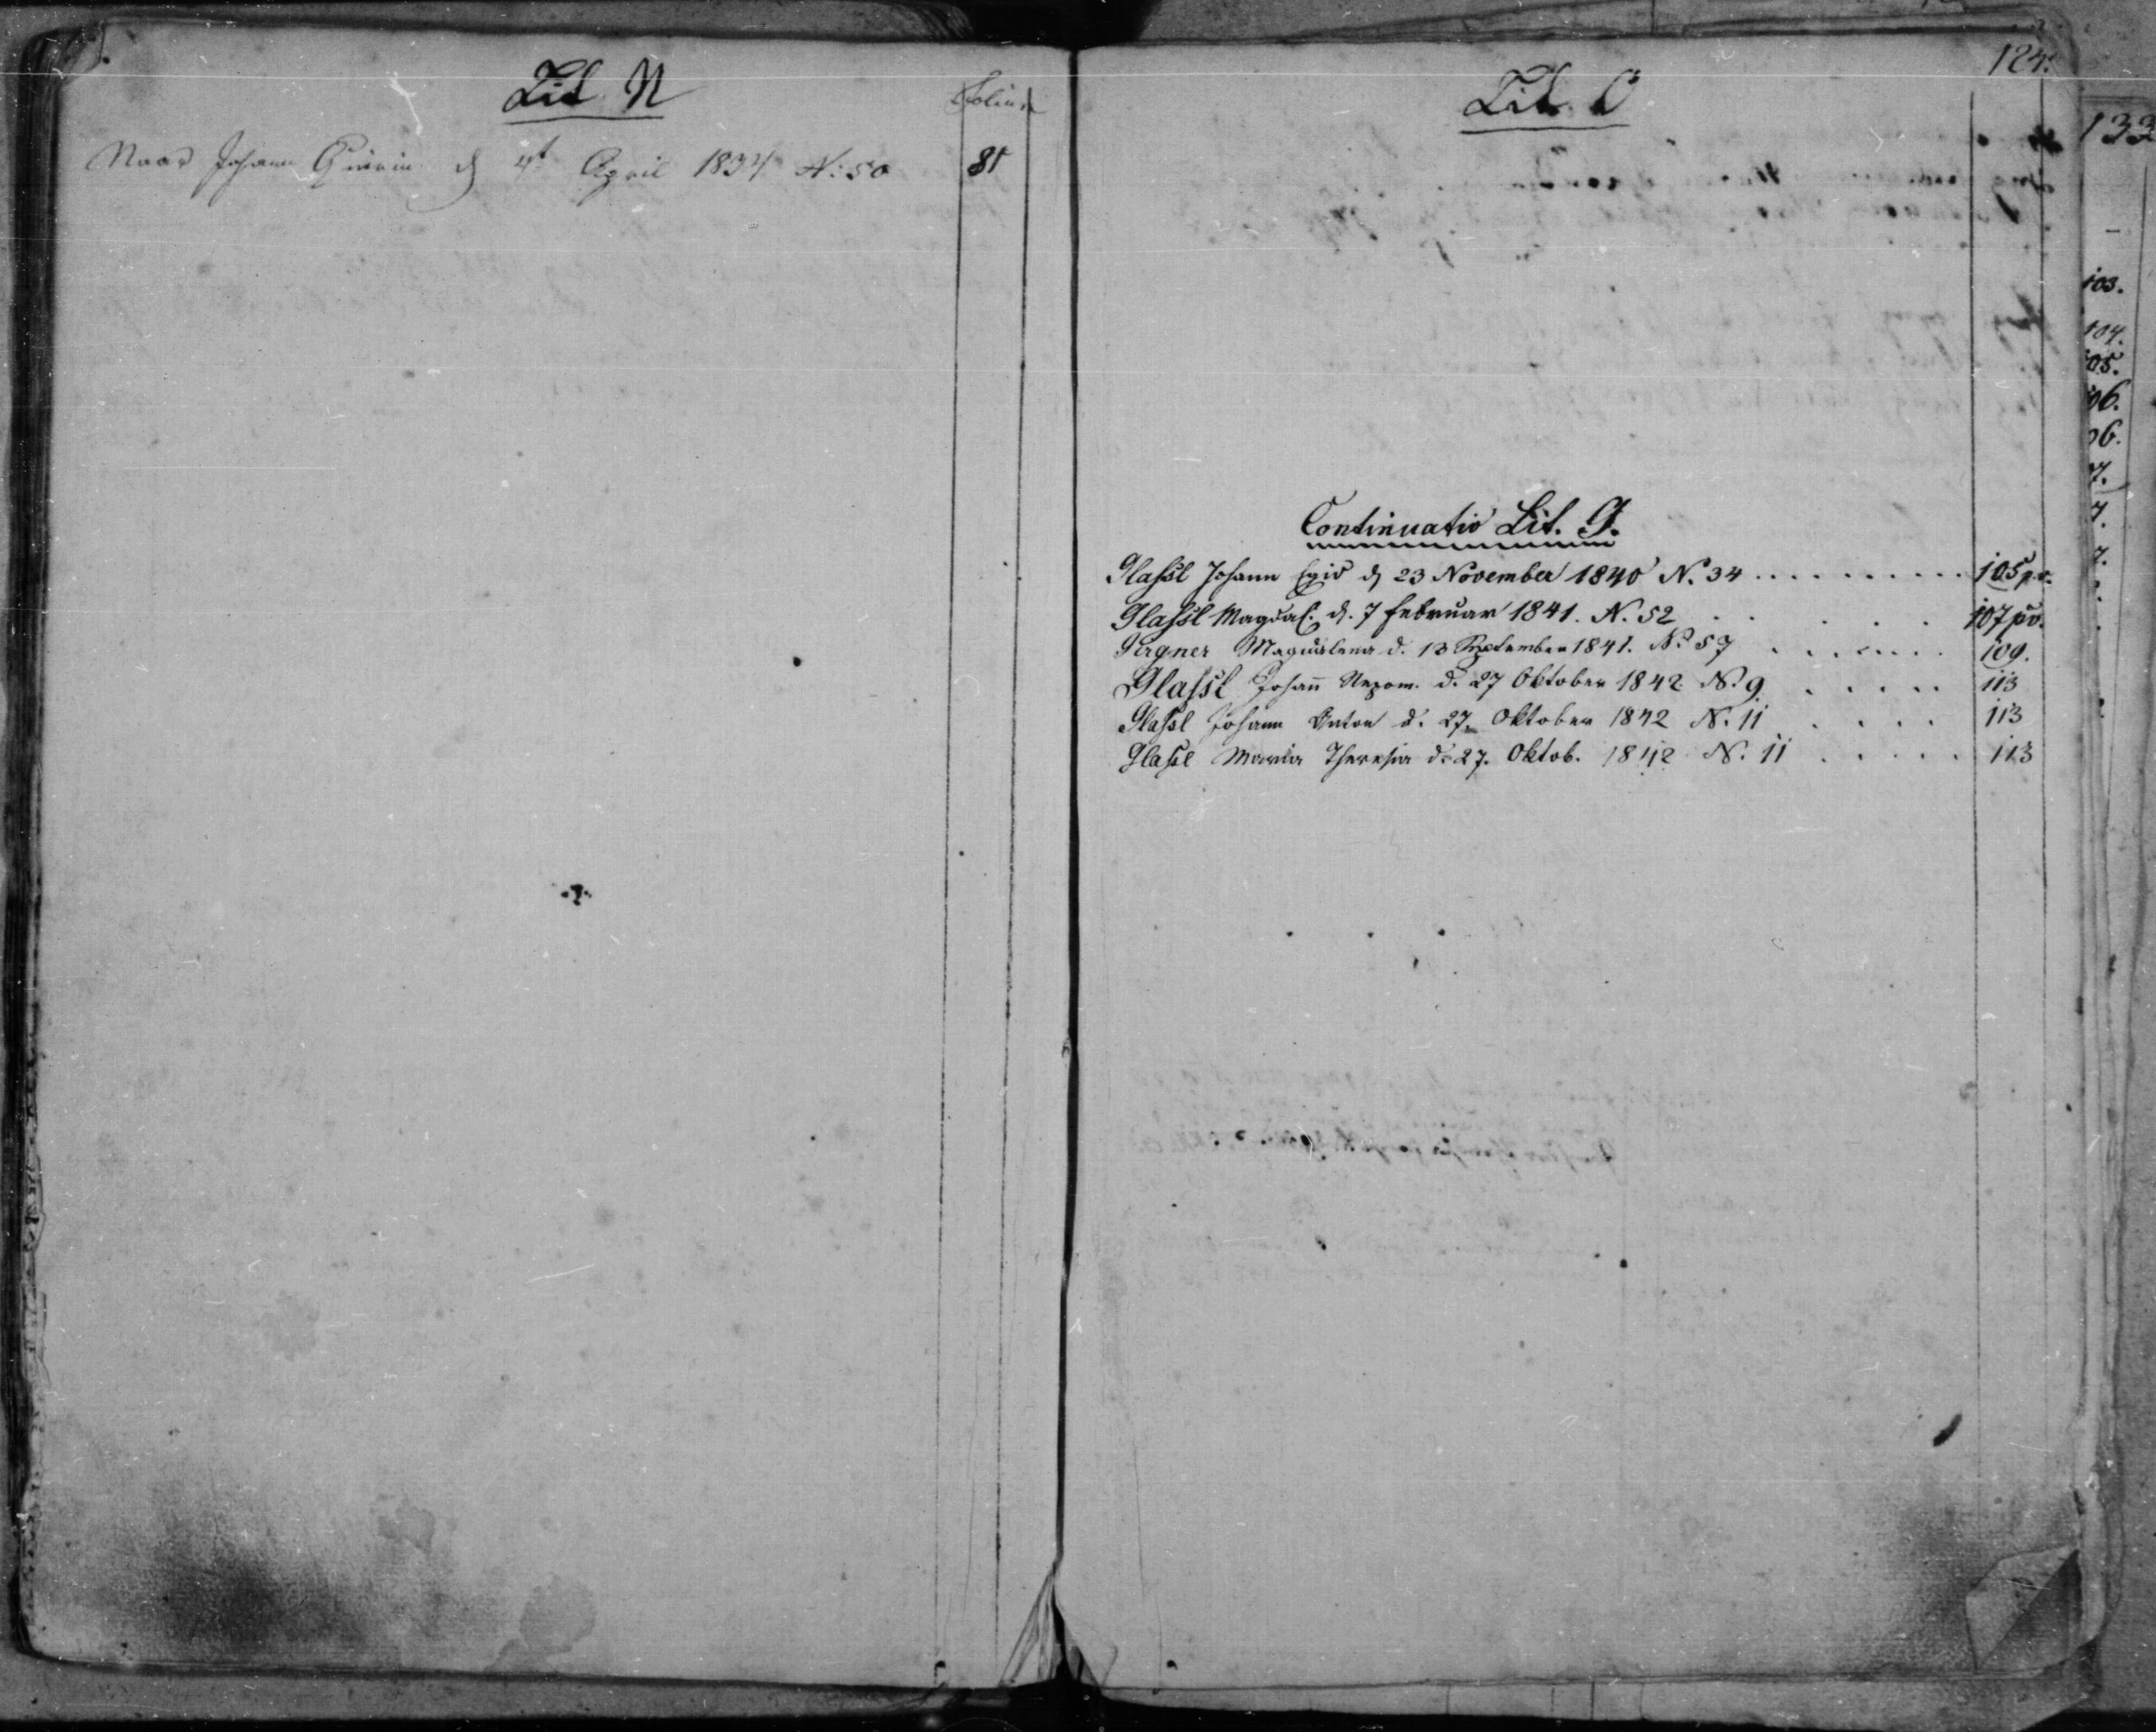 Lit N
Folium
Naar Johann Quirin d 4t April 1834 N: 50 81
124.
Lit. O
Continuatio Lit. G.
Glaßl Johann Egid d 23 November 1840 N. 34 .......... 105 p.v.
Glaßl Magdal. d. 7 Februar 1841. N. 52 . . . . . 107 pv.
Magdalena d. 13 September 1841. No 57 . . . . . . . 109.
Glaßl Johann Nepom. d. 27 Oktober 1842 N. 9 . . . . . 113
Glaßl Johann Anton d. 27. Oktober 1842 N. 11 . . . . 113
Glaßl Maria Theresia d. 27. Oktob. 1842 N. 11 . . . . . 113
133
103.
104.
05.
06.
06.
7.
7.
7.